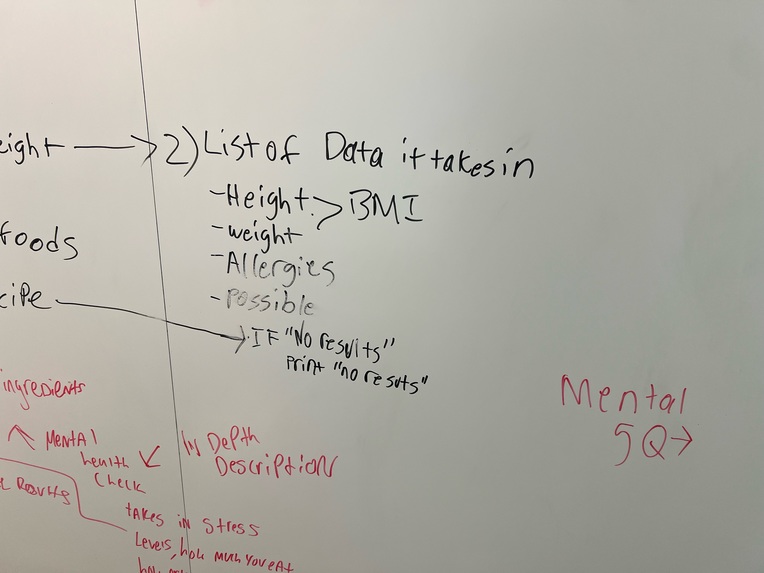 eight → 2) List of Data it takes in
- Height > BMI
- weight
foods
- Allergies
- possible
cipe → · IF "No results"
print "no resuts"
ingredients
Mental
health
Check
In Depth
Description
Results
takes in Stress
Levels, how much you eat
Mental
5Q→